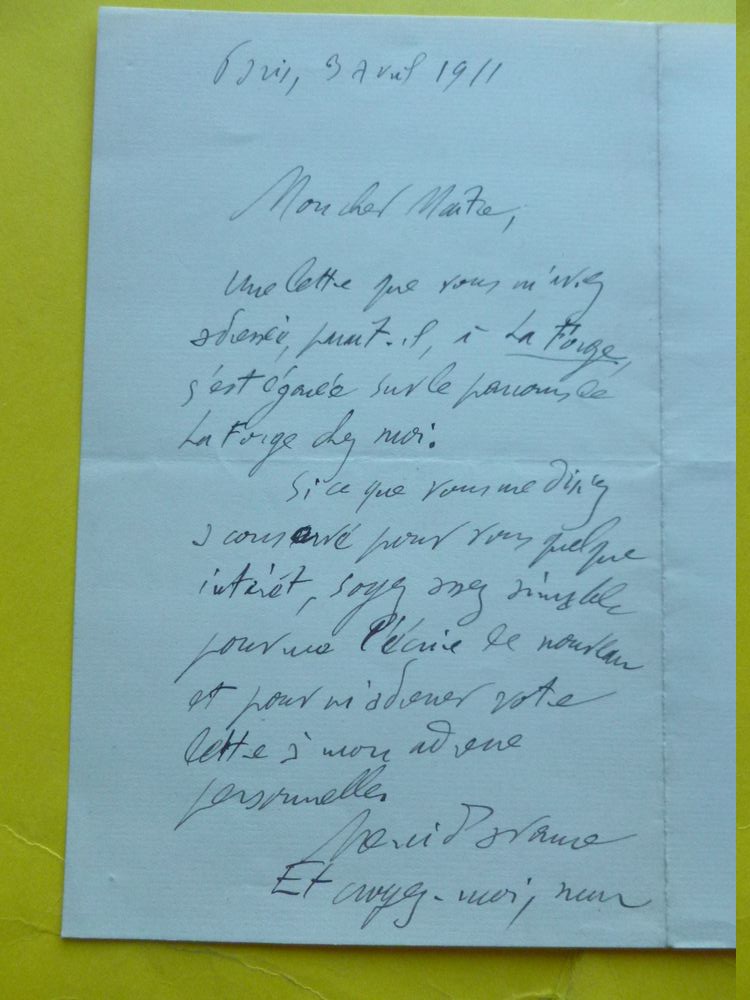 Paris, 3 Avril 1911
Mon cher Maitre,
Une lettre que vous m'aviez
adressée, parait-il, à La Forge,
s'est égarée sur le parcours de
La Forge chez moi.
Si ce que vous me disiez
a conservé pour vous quelque
intérêt, soyez assez aimable
pour me l'écrire de nouveau
et pour m'adresser votre
lettre à mon adresse
personnelle.
Merci d'avance
Et croyez-moi, mon